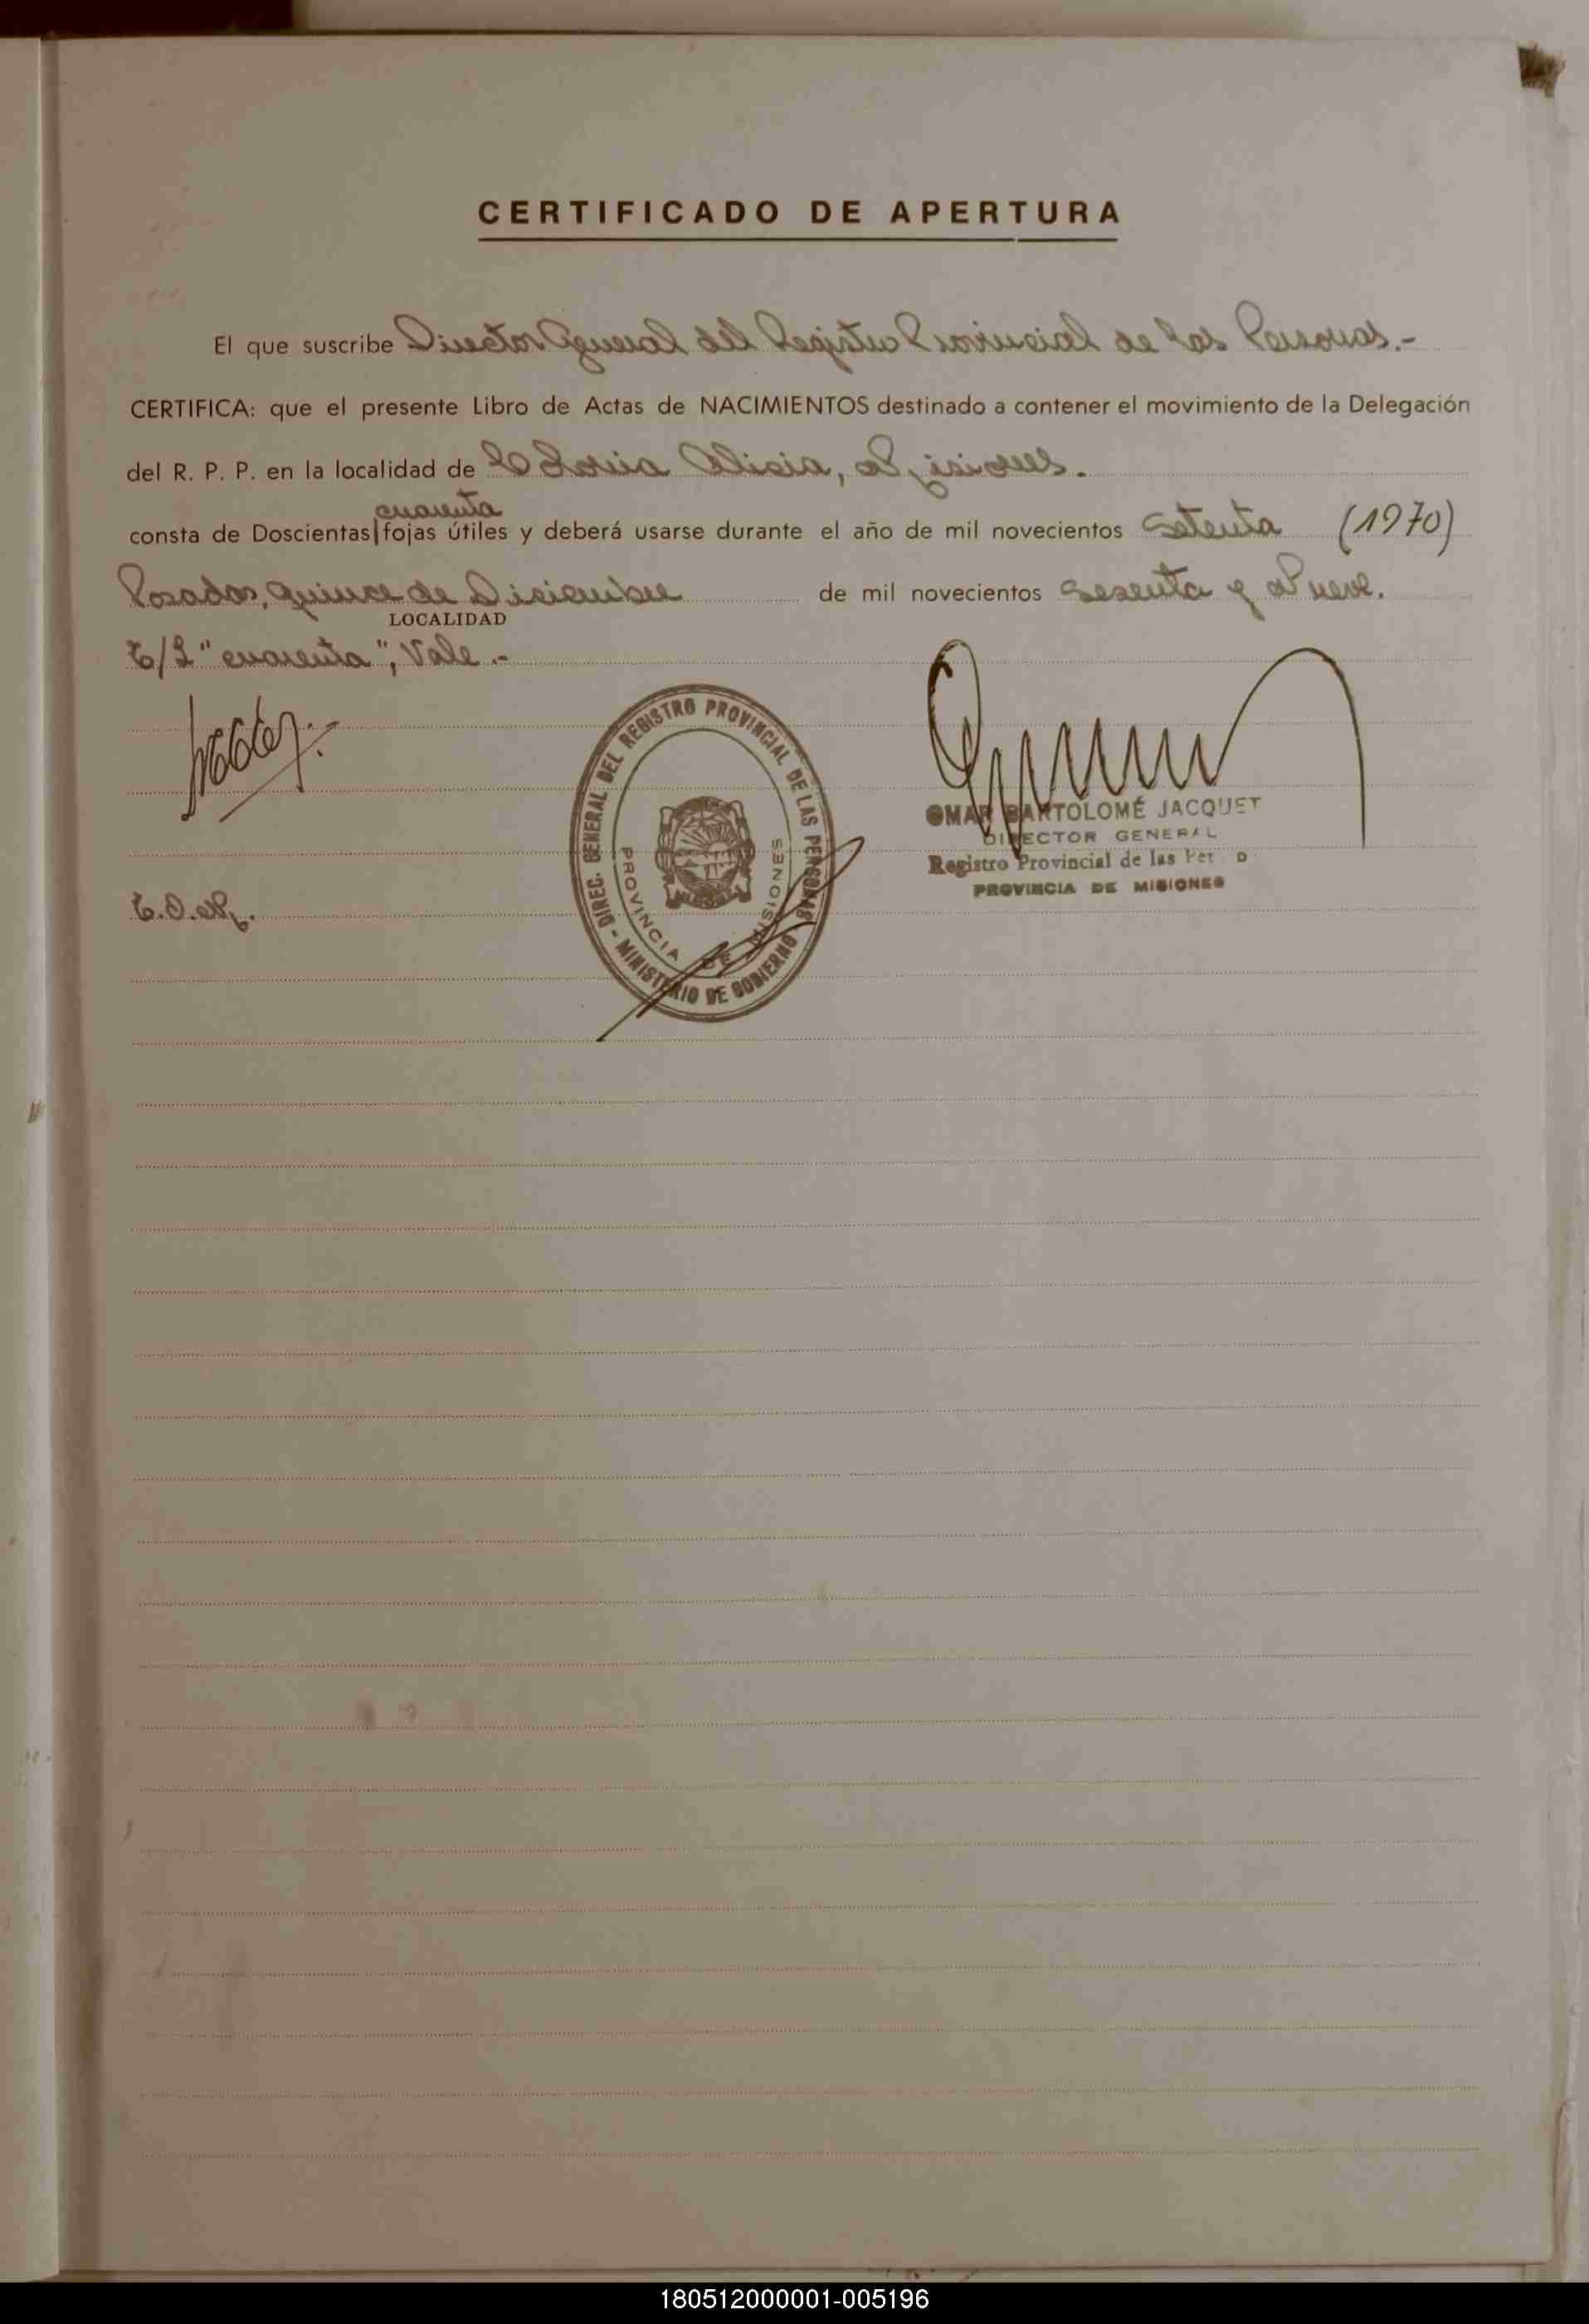 CERTIFICADO DE APERTURA
El que suscribe Director General del Registro Provincial de las Personas.-
CERTIFICA: que el presente Libro de Actas de NACIMIENTOS destinado a contener el movimiento de la Delegación
del R. P. P. en la localidad de Alicia, Misiones.
cuarenta
consta de Doscientas|fojas útiles y deberá usarse durante el año de mil novecientos Setenta (1970)
Posadas, quince de Diciembre de mil novecientos Sesenta y Nueve.
LOCALIDAD
E/L "cuarenta", Vale.-
DIREC. GENERAL DEL REGISTRO PROVINCIAL DE LAS PERSONAS - MINISTERIO DE GOBIERNO
PROVINCIA DE MISIONES
OMAR BARTOLOMÉ JACQUET
DIRECTOR GENERAL
Registro Provincial de las Per o
PROVINCIA DE MISIONES
180512000001-005196